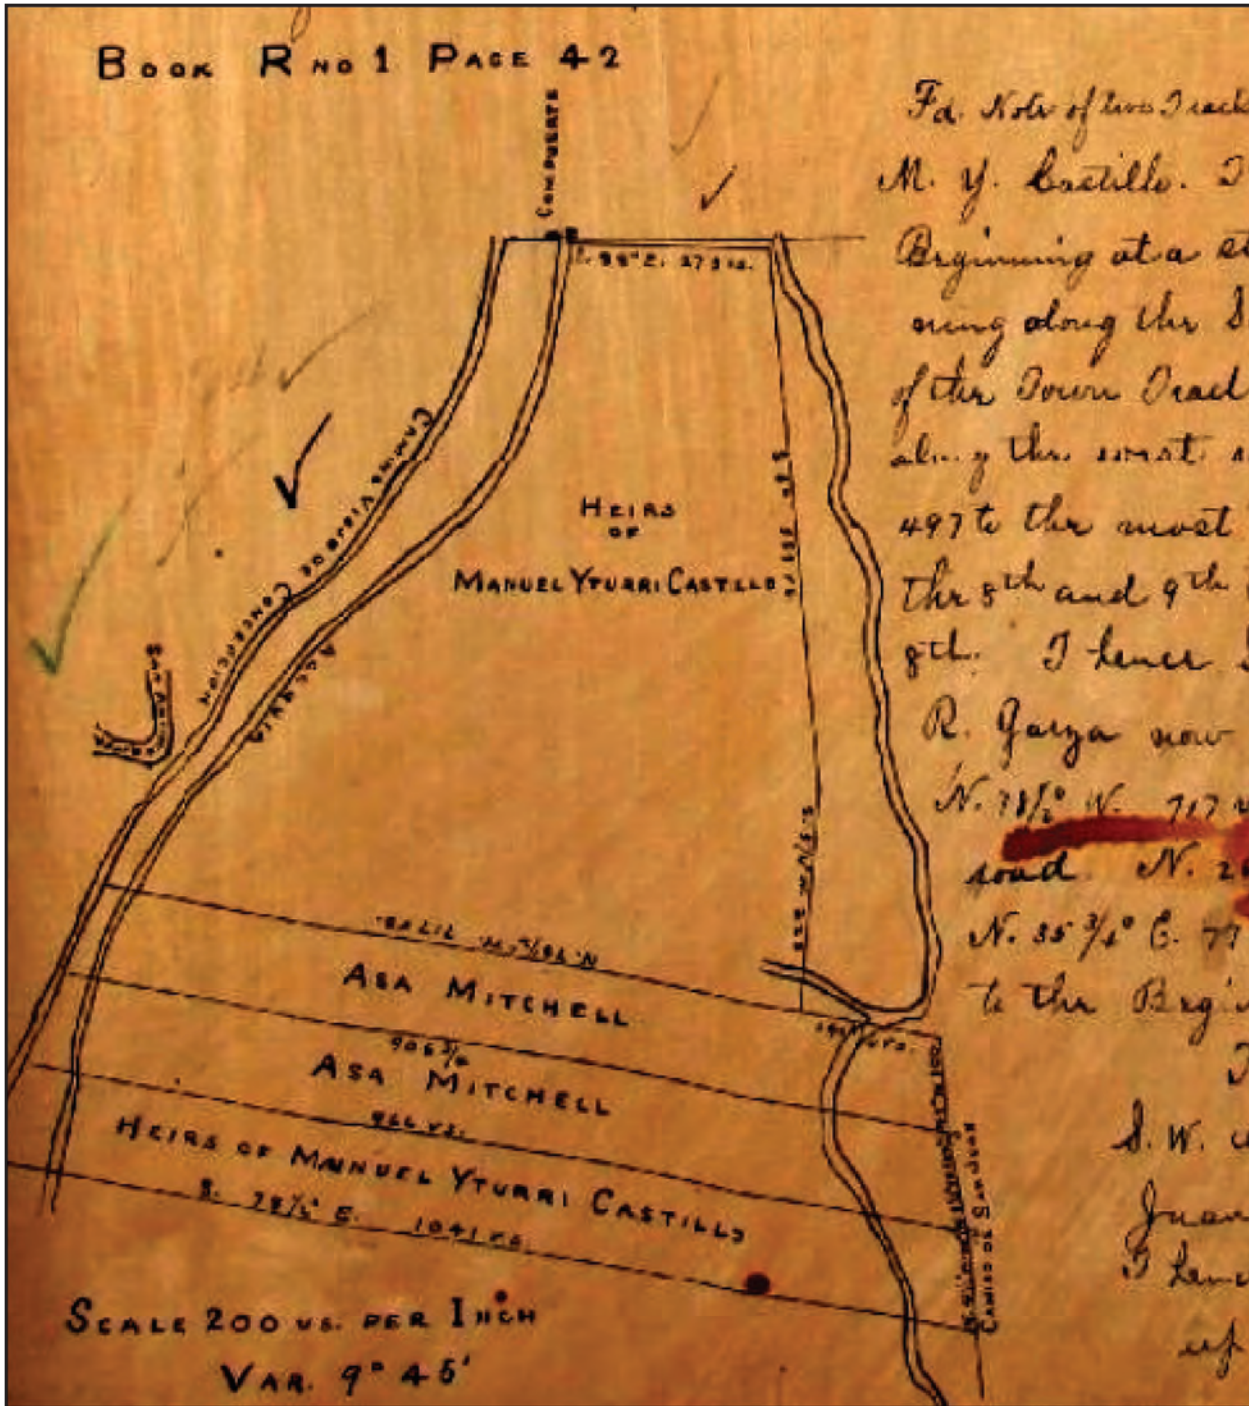 BOOK R NO 1 PAGE 42
COMPUERTE
S. 88° E. 275 vs.
CAMINO VIEJO DE CONCEPCION
ACEQUIA
HEIRS
OF
MANUEL YTURRI CASTILLO
SAN
N. 78½° W. 717 vs.
ASA MITCHELL
906 3/4
ASA MITCHELL
966 vs.
HEIRS OF MANUEL YTURRI CASTILLO
S. 78½° E. 1041 vs.
CAMINO DE
SCALE 200 vs. PER INCH
VAR. 9° 45'
Fd. Note of two Track
M. Y. Castillo.
Beginning at a st
ning along the S
of the Town Tract
along the
497 to the most
the 8th and 9th
8th. Thence
R. Garza now
N. 78½° W. 717 v
road. N. 2
N. 35 3/4° E. 77
to the Begi
T
S. W.
Juan
Thenc